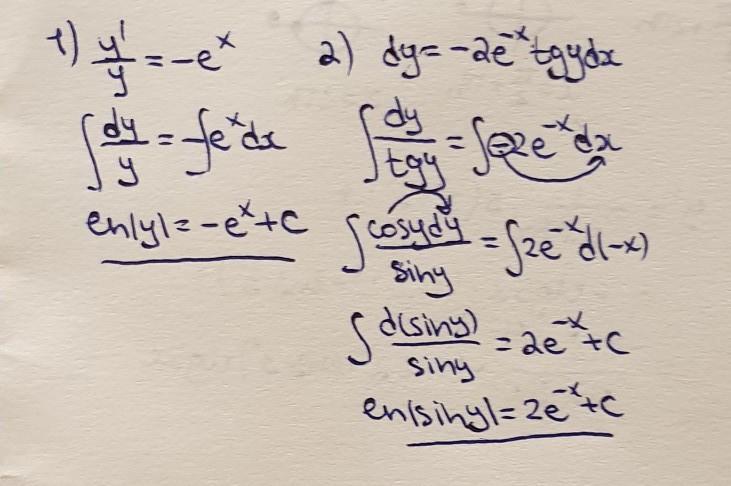 1) y'/y = -e^x
∫ dy/y = -∫e^x dx
ln|y| = -e^x + C
2) dy = -2e^-x tgy dx
∫ dy/tgy = ∫-2e^-x dx
∫ cosydy/siny = ∫2e^-x d(-x)
∫ d(siny)/siny = 2e^-x + C
ln|siny| = 2e^-x + C